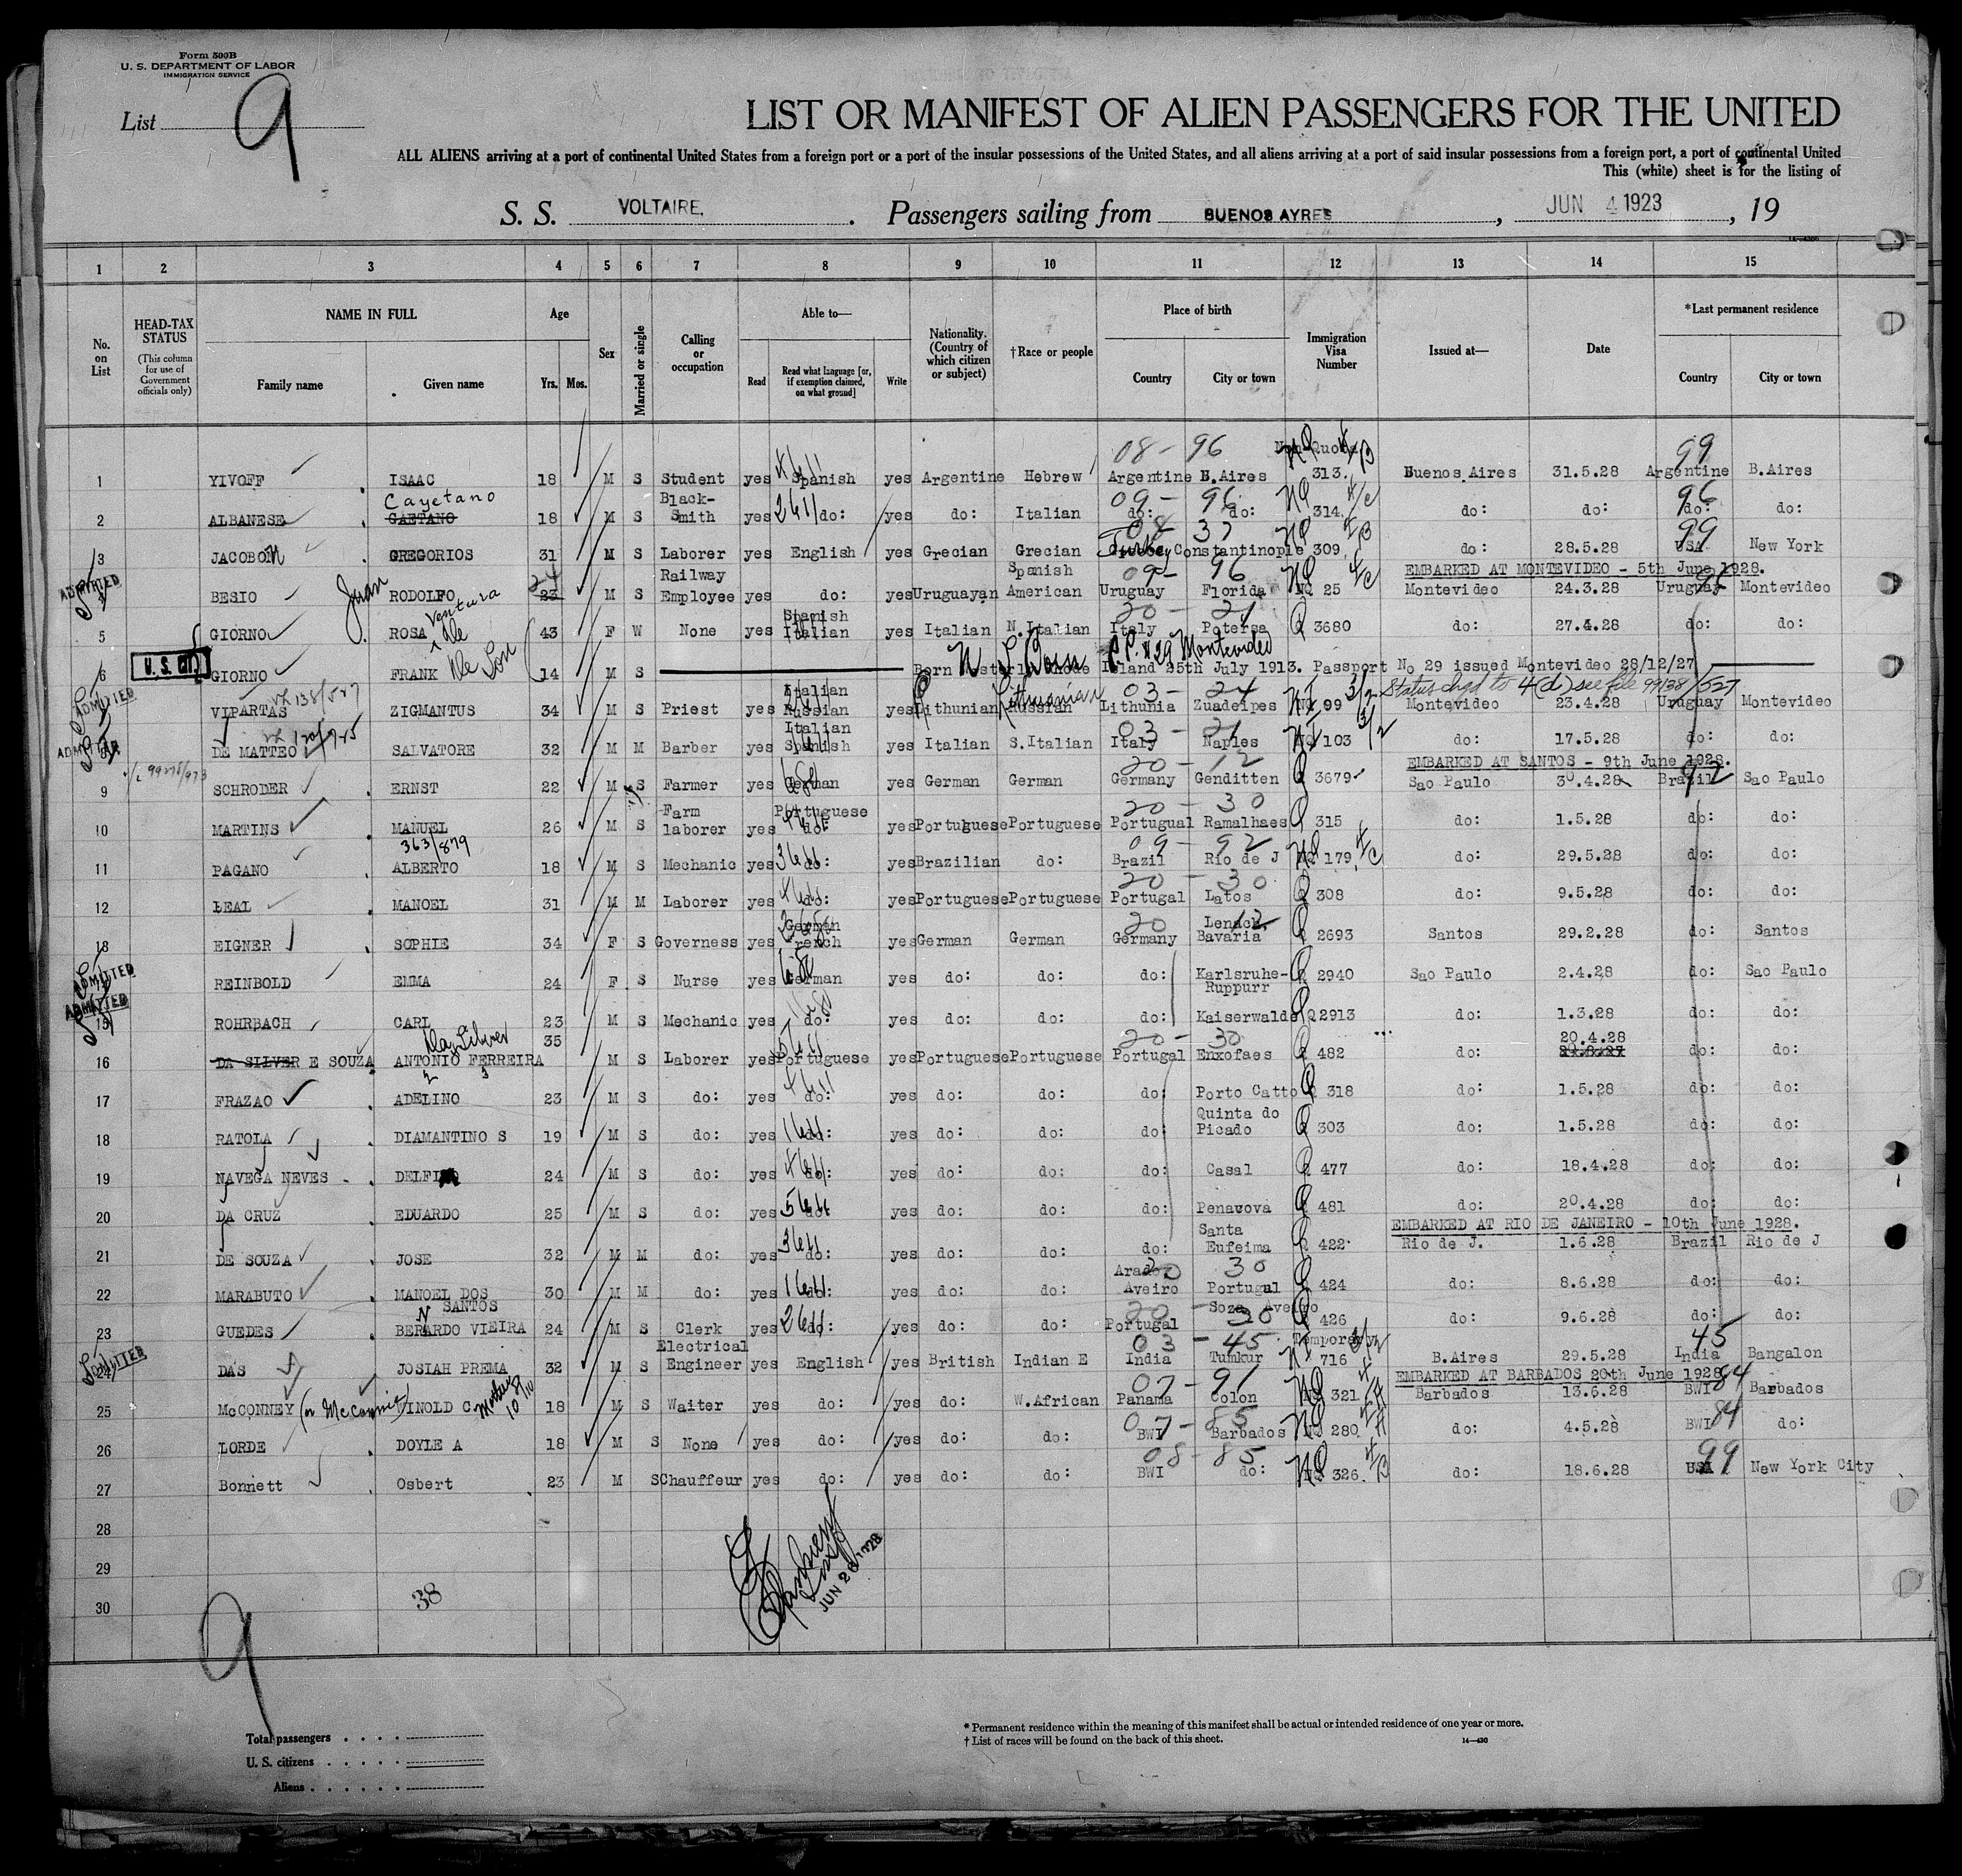 Form 500B
U. S. DEPARTMENT OF LABOR
IMMIGRATION SERVICE
List 9
LIST OR MANIFEST OF ALIEN PASSENGERS FOR THE UNITED
ALL ALIENS arriving at a port of continental United States from a foreign port or a port of the insular possessions of the United States, and all aliens arriving at a port of said insular possessions from a foreign port, a port of continental United
This (white) sheet is for the listing of
S. S. VOLTAIRE. Passengers sailing from BUENOS AYRES, JUN 4 1923, 19
1 2 3 4 5 6 7 8 9 10 11 12 13 14 15
No. on List
HEAD-TAX STATUS (This column for use of Government officials only)
NAME IN FULL Family name Given name
Age Yrs. Mos.
Sex
Married or single
Calling or occupation
Able to— Read Read what language [or, if exemption claimed, on what ground] Write
Nationality. (Country of which citizen or subject)
†Race or people
Place of birth Country City or town
Immigration Visa Number
Issued at—
Date
*Last permanent residence Country City or town
08 - 96 Non Quota 99
1 YIVOFF ISAAC 18 M S Student yes Spanish yes Argentine Hebrew Argentine B.Aires 313. Buenos Aires 31.5.28 Argentine B.Aires
Cayetano Black- 09 - 96 96
2 ALBANESE GAETANO 18 M S Smith yes do: yes do: Italian do: do: 314. do: do: do: do:
08 37 99
3 JACOBON GREGORIOS 31 M S Laborer yes English yes Grecian Grecian Turkey Constantinople 309. do: 28.5.28 USA New York
ADMITTED Juan 24 Railway Spanish 09 - 96 EMBARKED AT MONTEVIDEO - 5th June 1928.
BESIO RODOLFO 23 M S Employee yes do: yes Uruguayan American Uruguay Florida NQ 25 Montevideo 24.3.28 Uruguay Montevideo
Ventura de Spanish 20 - 21
5 GIORNO ROSA 43 F W None yes Italian yes Italian N.Italian Italy Potersa Q 3680 do: 27.4.28 do: do:
U.S. CIT. de Son P.P. #29 Montevideo
6 GIORNO FRANK 14 M S Born Westerly Rhode Island 25th July 1913. Passport No 29 issued Montevideo 28/12/27
ADMITTED 138/527 Italian Lithuanian 03 - 24 Status chgd to 4(d) see file 99138/527
VIPARTAS ZIGMANTUS 34 M S Priest yes Russian yes Lithunian Russian Lithunia Zuadcipes 99 Montevideo 23.4.28 Uruguay Montevideo
ADMITTED Italian 03 - 21
DE MATTEO SALVATORE 32 M M Barber yes Spanish yes Italian S.Italian Italy Naples 103 do: 17.5.28 do: do:
20 - 12 EMBARKED AT SANTOS - 9th June 1928.
9 SCHRODER ERNST 22 M S Farmer yes German yes German German Germany Genditten Q 3679 Sao Paulo 30.4.28 Brazil Sao Paulo
Farm Portuguese 20 - 30
10 MARTINS MANUEL 26 M S laborer yes do: yes Portuguese Portuguese Portugual Ramalhaes Q 315 do: 1.5.28 do: do:
363/879 09 - 92
11 PAGANO ALBERTO 18 M S Mechanic yes do: yes Brazilian do: Brazil Rio de J NQ 179. do: 29.5.28 do: do:
20 - 30
12 LEAL MANOEL 31 M M Laborer yes do: yes Portuguese Portuguese Portugal Latos Q 308 do: 9.5.28 do: do:
German 20 12
13 EIGNER SOPHIE 34 F S Governess yes French yes German German Germany Bavaria Q 2693 Santos 29.2.28 do: Santos
ADMITTED
REINBOLD EMMA 24 F S Nurse yes German yes do: do: do: Karlsruhe-Ruppurr Q 2940 Sao Paulo 2.4.28 do: Sao Paulo
ADMITTED
15 ROHRBACH CARL 23 M S Mechanic yes do: yes do: do: do: Kaiserwalde Q 2913 do: 1.3.28 do: do:
da Silver 35 20 - 30 20.4.28
16 DA SILVER E SOUZA ANTONIO FERREIRA M S Laborer yes Portuguese yes Portuguese Portuguese Portugal Enxofaes Q 482 do: do: do:
17 FRAZAO ADELINO 23 M S do: yes do: yes do: do: do: Porto Catto Q 318 do: 1.5.28 do: do:
18 RATOLA DIAMANTINO S 19 M S do: yes do: yes do: do: do: Quinta do Picado Q 303 do: 1.5.28 do: do:
19 NAVEGA NEVES DELFI 24 M S do: yes do: yes do: do: do: Casal Q 477 do: 18.4.28 do: do:
20 DA CRUZ EDUARDO 25 M S do: yes do: yes do: do: do: Penacova Q 481 do: 20.4.28 do: do:
Santa EMBARKED AT RIO DE JANEIRO - 10th June 1928.
21 DE SOUZA JOSE 32 M M do: yes do: yes do: do: do: Eufeima Q 422 Rio de J. 1.6.28 Brazil Rio de J
30
22 MARABUTO MANOEL DOS SANTOS 30 M M do: yes do: yes do: do: Aveiro Portugal Q 424 do: 8.6.28 do: do:
20 - 30 Soza Aveiro
23 GUEDES BERARDO VIEIRA 24 M S Clerk yes do: yes do: do: Portugal Q 426 do: 9.6.28 do: do:
ADMITTED Electrical 03 - 45 Temporary 45
24 DAS JOSIAH PREMA 32 M S Engineer yes English yes British Indian E India Tumkur 716 B.Aires 29.5.28 India Bangalon
07 - 91 EMBARKED AT BARBADOS 20th June 1928 84
25 McCONNEY (or McConnie) VINOLD C. 18 M S Waiter yes do: yes do: W.African Panama Colon NQ 321 Barbados 13.6.28 BWI Barbados
07 - 85 84
26 LORDE DOYLE A 18 M S None yes do: yes do: do: BWI Barbados NQ 280 do: 4.5.28 BWI do:
08 - 85 99
27 Bonnett Osbert 23 M S Chauffeur yes do: yes do: do: BWI do: NQ 326. do: 18.6.28 USA New York City
28
29
JUN 20 1928
30
38
9
Total passengers
U. S. citizens
Aliens
* Permanent residence within the meaning of this manifest shall be actual or intended residence of one year or more.
† List of races will be found on the back of this sheet.
14—430